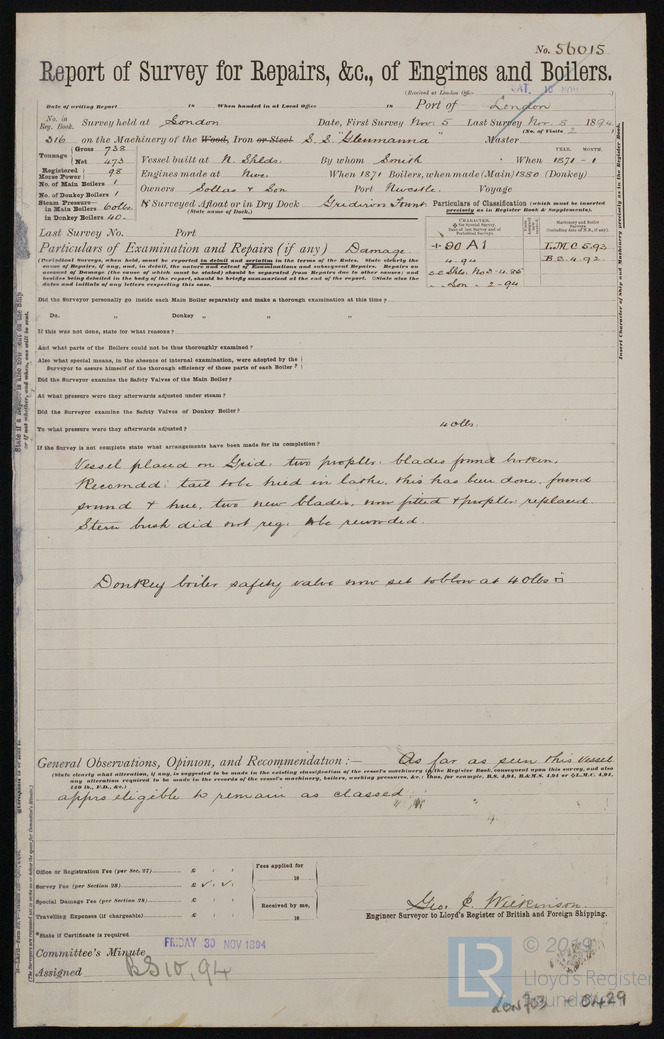 No. 56015
Report of Survey for Repairs, &c., of Engines and Boilers.
(Received at London Office
Date of writing Report 18 When handed in at Local Office 18 Port of London
No. in Reg. Book. Survey held at London Date, First Survey Nov. 5 Last Survey Nov. 8 1894
(No. of Visits 2)
316 on the Machinery of the Wood, Iron or Steel S.S. "Glenmanna" Master
Tonnage Gross 738 Net 473
YEAR. MONTH.
Vessel built at N. Shlds. By whom Smith When 1871 - 1
Registered Horse Power 98
Engines made at Nwc. When 1871 Boilers, when made (Main) 1880 (Donkey)
No. of Main Boilers 1
No. of Donkey Boilers 1
Owners Sollas & Son Port Newcstle. Voyage
Steam Pressure in Main Boilers 60lbs.
in Donkey Boilers 40.
If Surveyed Afloat or in Dry Dock Gridiron Fount.
(State name of Dock.)
Particulars of Classification (which must be inserted precisely as in Register Book & Supplements).
Last Survey No. Port
CHARACTER.
Machinery and Boiler Surveys
+ 90 A1 L.M.C 5.93
4-94 B.S. 4.92
s.s. Shls. No 3-4.85
" Lon 2-94
Particulars of Examination and Repairs (if any) Damage
(Periodical Surveys, when held, must be reported in detail and seriatim in the terms of the Rules. State clearly the
cause of Repairs, if any, and, in detail, the nature and extent of Examinations and consequent Repairs. Repairs on
account of Damage (the cause of which must be stated) should be separated from Repairs due to other causes; and
besides being detailed in the body of the report, should be briefly summarized at the end of the report. State also the
dates and initials of any letters respecting this case.
Did the Surveyor personally go inside each Main Boiler separately and make a thorough examination at this time?
Do. " Donkey " " "
If this was not done, state for what reasons?
And what parts of the Boilers could not be thus thoroughly examined?
Also what special means, in the absence of internal examination, were adopted by the
Surveyor to assure himself of the thorough efficiency of those parts of each Boiler?
Did the Surveyor examine the Safety Valves of the Main Boiler?
At what pressure were they afterwards adjusted under steam?
Did the Surveyor examine the Safety Valves of Donkey Boiler?
To what pressure were they afterwards adjusted? 40lbs.
If the Survey is not complete state what arrangements have been made for its completion?
Vessel placed on Grid: two propller: blades found broken.
Recomdd: tail to be tried in lathe, this has been done, found
sound & true, two new blades, now fitted & propller: replaced.
Stern bush did not reg: to be rewooded.
Donkey boiler safety valve now set to blow at 40lbs □
General Observations, Opinion, and Recommendation :— As far as seen this vessel
(State clearly what alteration, if any, is suggested to be made in the existing classification of the vessel's machinery in the Register Book, consequent upon this survey, and also
any alteration required to be made in the records of the vessel's machinery, boilers, working pressures, &c.: thus, for example, B.S. 4,94, B.&M.S. 4,94 or L.M.C. 4,94,
140 lb., F.D., &c.)
apprs eligible to remain as classed
Office or Registration Fee (per Sec. 27) £ : :
Survey Fee (per Section 28) £ ✓ : ✓ :
Special Damage Fee (per Section 28) £ : :
Travelling Expenses (if chargeable) £ : :
Fees applied for
18
Received by me,
18
Geo. C. Wilkinson
Engineer Surveyor to Lloyd's Register of British and Foreign Shipping.
*State if Certificate is required
Committee's Minute FRIDAY 30 NOV 1894
Assigned BS 10,94
Insert Character of Ship and Machinery precisely as in the Register Book.
LR
© 2019
Lloyd's Register
Foundation
LON703 - 0429